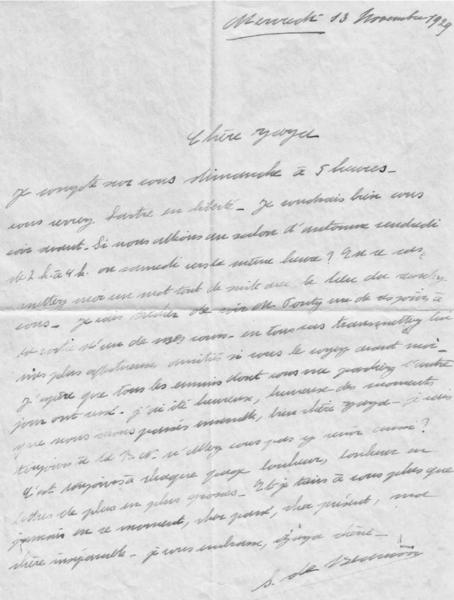 Mercredi 13 Novembre 1929
Chère Zaza
Je compte sur vous dimanche à 5 heures -
vous verrez Sartre en liberté - Je voudrais bien vous
voir avant. Si nous allions au salon d'automne vendredi
de 2 h. à 4 h. ou samedi vers la même heure? En ce cas,
mettez moi un mot tout de suite avec le lieu du rendez-
vous - Je vais essayer de voir M. Ponty un de ces jours à
la sortie d'un de ses cours - en tous cas transmettez lui
mes plus affectueuses amitiés si vous le voyez avant moi -
J'espère que tous les ennuis dont vous me parliez l'autre
jour ont cessé - J'ai été heureuse, heureuse des moments
que nous avons passés ensemble, bien chère Zaza - je vais
toujours à la B.N. n'allez vous pas y venir aussi?
C'est toujours à chaque page bonheur, bonheur en
lettres de plus en plus grosses - Et je tiens à vous plus que
jamais en ce moment, cher passé, cher présent, ma
chère inséparable - je vous embrasse, Zaza chérie -
S. de Beauvoir